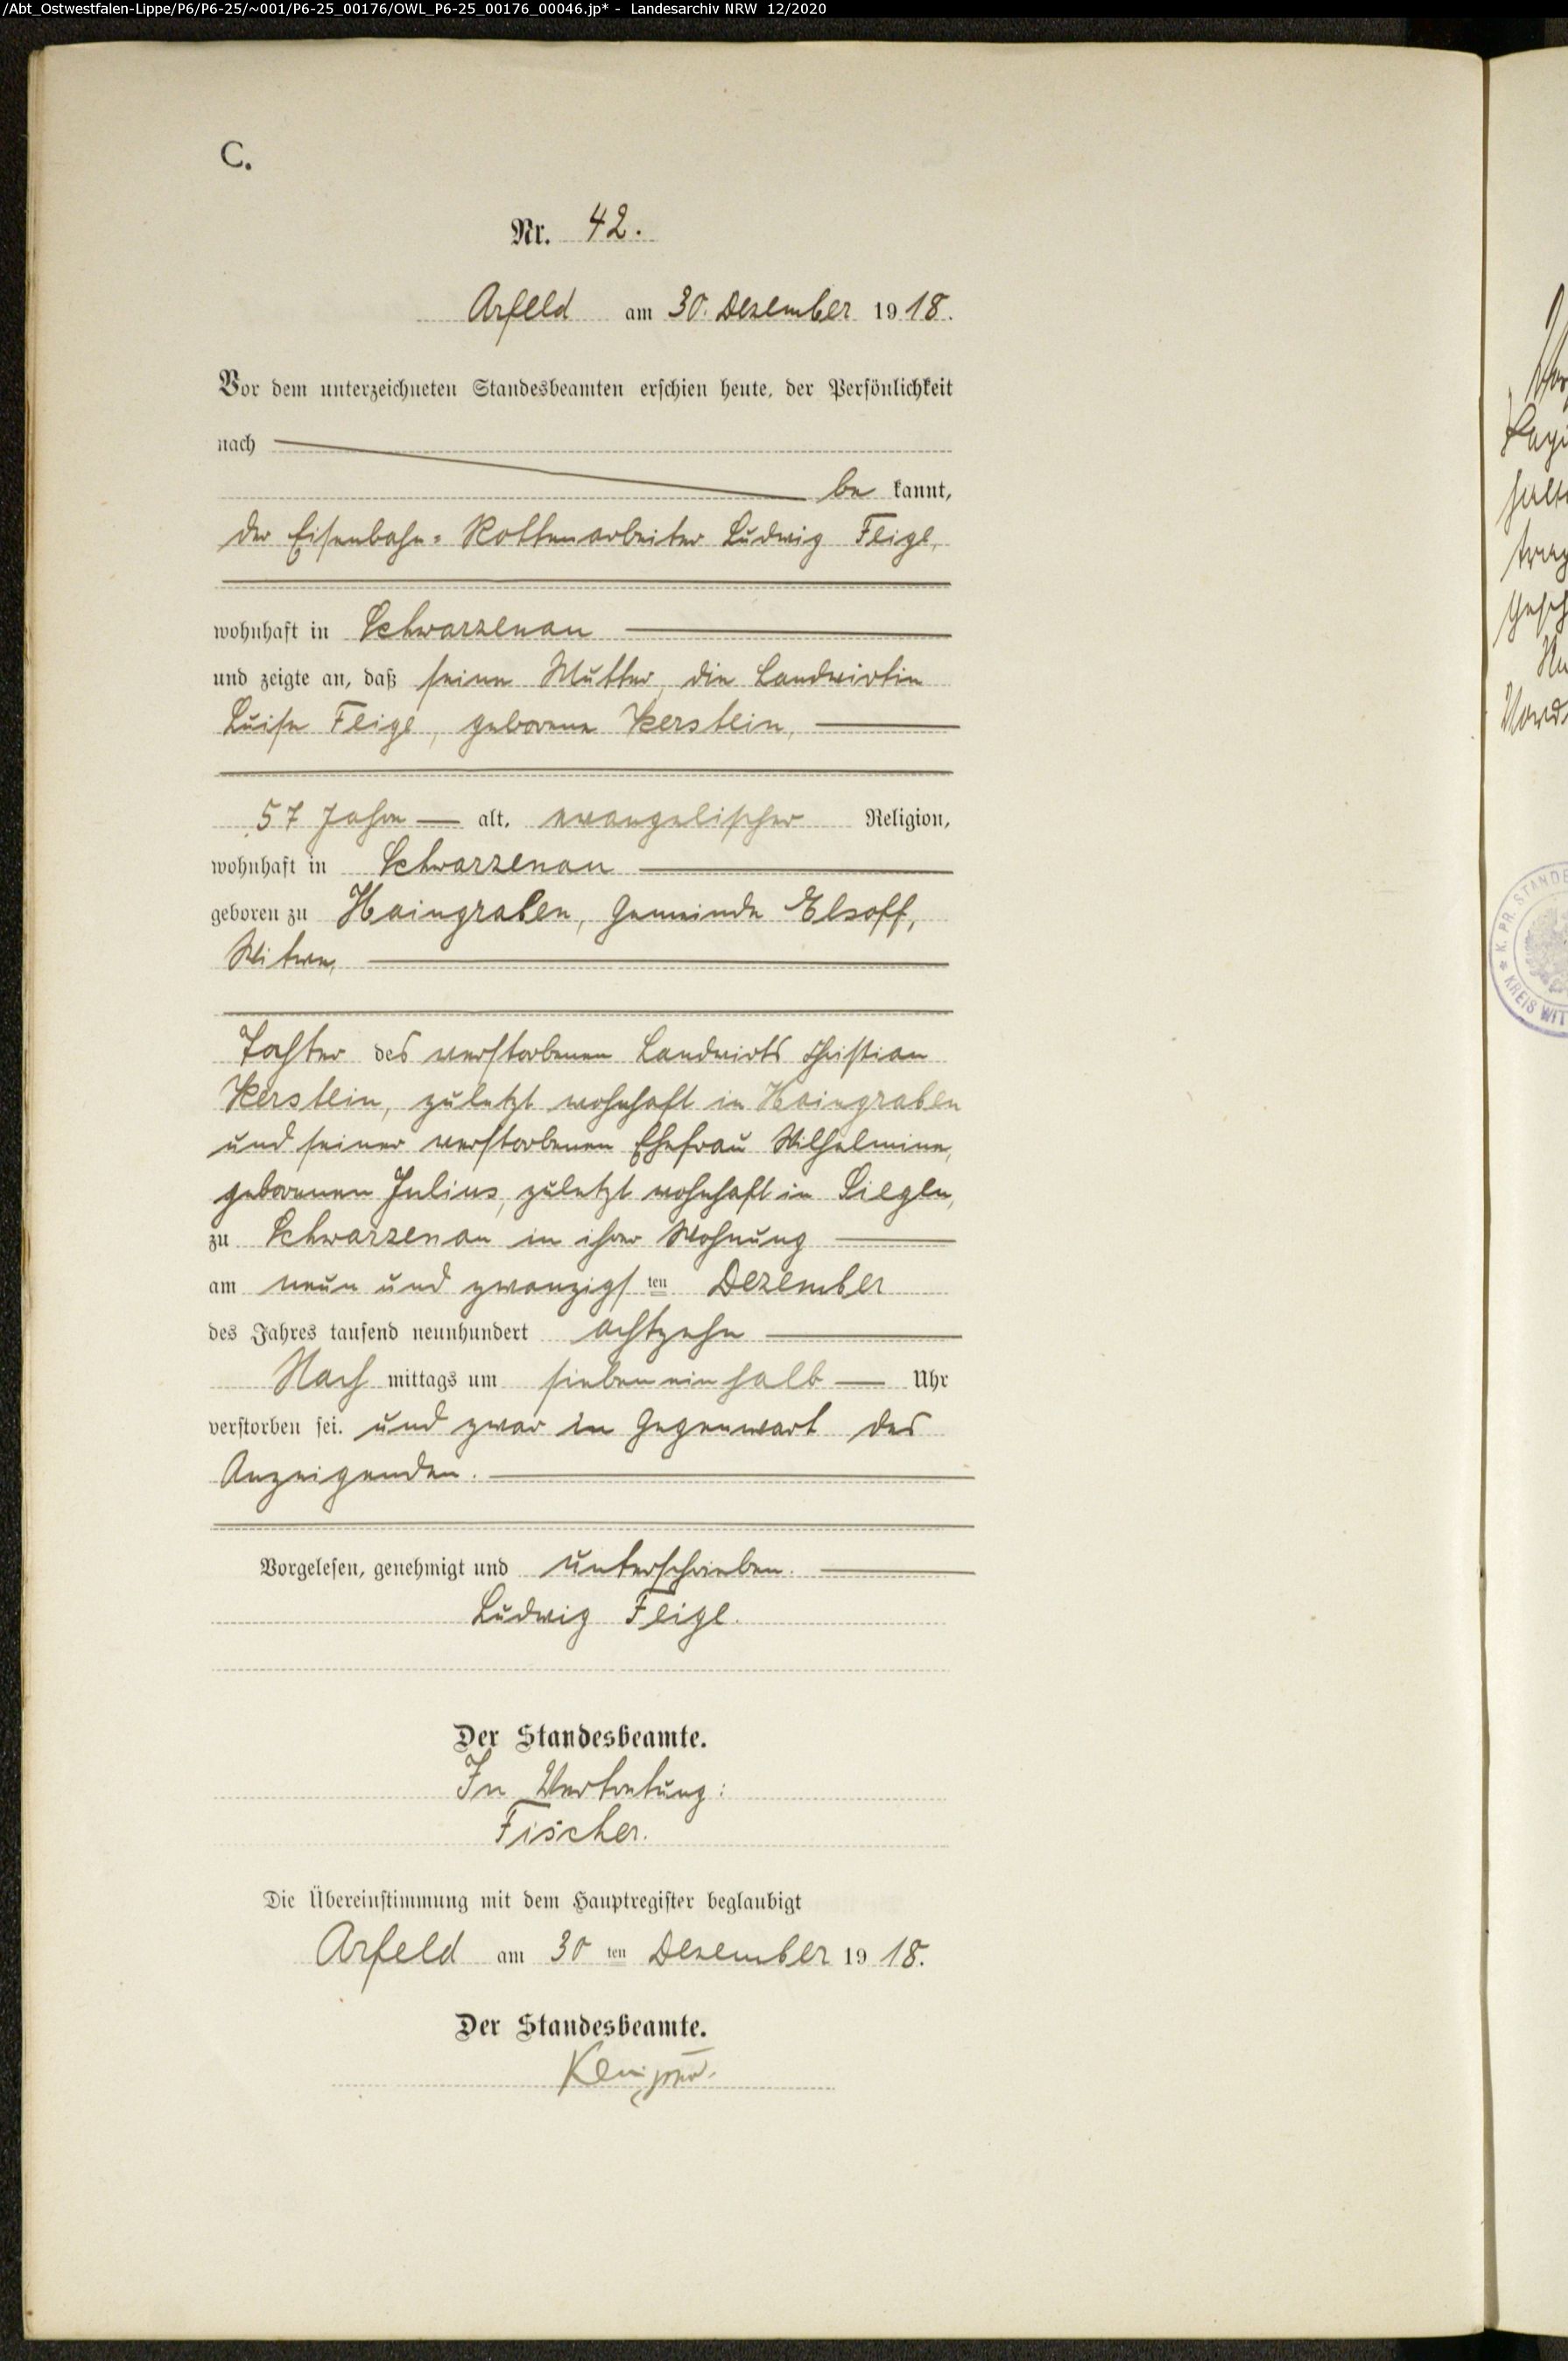 /Abt_Ostwestfalen-Lippe/P6/P6-25/~001/P6-25_00176/OWL_P6-25_00176_00046.jp* - Landesarchiv NRW 12/2020
C.
Nr. 42.
Arfeld am 30. Dezember 1918.
Vor dem unterzeichneten Standesbeamten erschien heute, der Persönlichkeit
nach
be kannt,
der Eisenbahn-Rottenarbeiter Ludwig Feige,
wohnhaft in Schwarzenau
und zeigte an, daß seine Mutter, die Landwirtin
Luise Feige, geborene Kerstein,
57 Jahre alt, evangelischer Religion,
wohnhaft in Schwarzenau
geboren zu Haingraben, Gemeinde Elsoff,
Witwe,
Tochter des verstorbenen Landwirts Christian
Kerstein, zuletzt wohnhaft in Haingraben
und seiner verstorbenen Ehefrau Wilhelmine,
geborenen Julius, zuletzt wohnhaft in Siegen,
zu Schwarzenau in ihrer Wohnung
am neun und zwanzigsten Dezember
des Jahres tausend neunhundert achtzehn
Nachmittags um sieben ein halb Uhr
verstorben sei. und zwar in Gegenwart des
Anzeigenden.
Vorgelesen, genehmigt und unterschrieben.
Ludwig Feige.
Der Standesbeamte.
In Vertretung:
Fischer.
Die Übereinstimmung mit dem Hauptregister beglaubigt
Arfeld am 30ten Dezember 1918.
Der Standesbeamte.